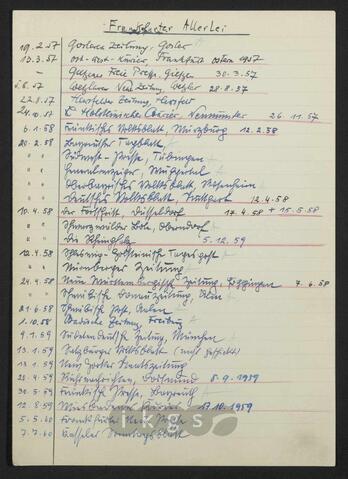 Frankfurter Allerlei
19.2.57 Goslarer Zeitung, Goslar
19.3.57 Ost-West-Kurier, Frankfurt Ostern 1957
— Giessener Freie Presse, Giessen 30.3.57
Wetzlarer Neue Zeitung, Wetzlar 28.8.57
22.8.57 Hersfelder Zeitung, Hersfeld
24.10.57 Holsteinische Courier, Neumünster 26.11.57
6.1.58 Fränkisches Volksblatt, Würzburg 12.2.58
20.2.58 Bayreuther Tagblatt
" " Südwest-Presse, Tübingen
" " Generalanzeiger, Wuppertal
" " Oberbayrisches Volksblatt, Rosenheim
" " Deutsches Volksblatt, Stuttgart 12.4.58
10.4.58 Der Fortschritt, Düsseldorf 17.4.58 + 15.5.58
" " Schwarzwälder Bote, Oberndorf
" " Die 5.12.59
12.4.58 Schleswig-Holsteinische Tagespost
" " Nürnberger Zeitung
24.4.58 Neue Württembergische Zeitung, Göppingen 7.6.58
" " Schwäbische Donauzeitung, Ulm
21.6.58 Schwäbische Post, Aalen
1.10.58 Badische Zeitung, Freiburg
9.1.59 Sudetendeutsche Zeitung, München
13.1.59 Salzburger Volksblatt (nicht geschickt)
13.1.59 New Yorker Staatszeitung
28.4.59 Ruhrnachrichten, Dortmund 8.9.1959
30.5.59 Fränkische Presse, Bayreuth
12.8.59 Wiesbadener Kurier 17.10.1959
5.5.60 Frankfurter Neue Presse
7.7.60 Kasseler Sonntagsblatt
ikgs